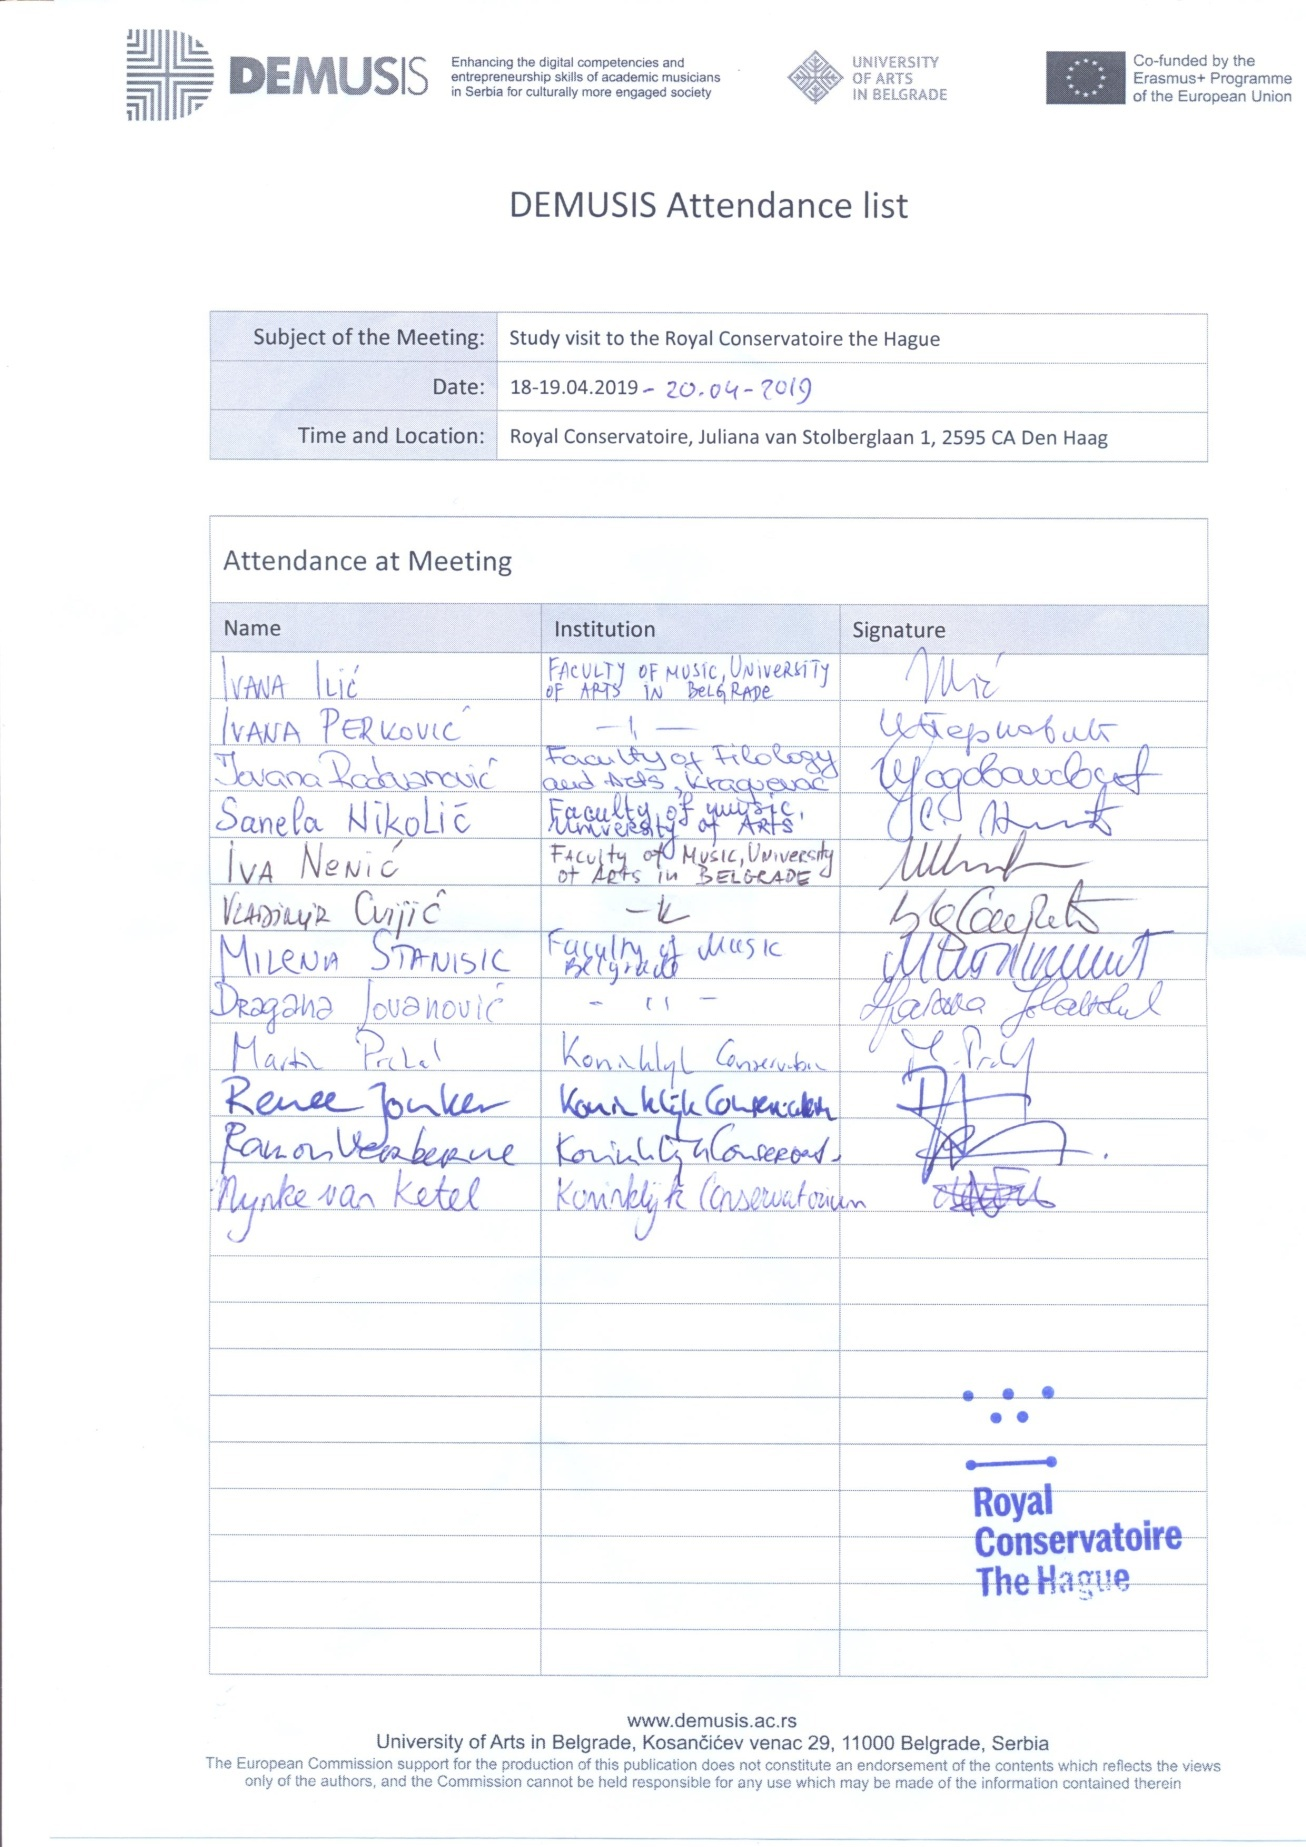 DEMUSIS
Enhancing the digital competencies and
entrepreneurship skills of academic musicians
in Serbia for culturally more engaged society
UNIVERSITY
OF ARTS
IN BELGRADE
Co-funded by the
Erasmus+ Programme
of the European Union
DEMUSIS Attendance list
Subject of the Meeting: Study visit to the Royal Conservatoire the Hague
Date: 18-19.04.2019 - 20.04-2019
Time and Location: Royal Conservatoire, Juliana van Stolberglaan 1, 2595 CA Den Haag
Attendance at Meeting
Name Institution Signature
IVANA ILIĆ FACULTY OF MUSIC, UNIVERSITY
OF ARTS IN BELGRADE
IVANA PERKOVIĆ — ı —
Jovana Radovanović Faculty of Filology
and Arts, Kragujevac
Sanela NIKOLIĆ Faculty of music,
University of ARTS
IVA NENIĆ FACULTY of MUSIC, UNIVERSITY
of ARTS in BELGRADE
VLADIMIR Cvijić
MILENA STANISIC Faculty of Music
Belgrade
Dragana Jovanović - 11 -
Martin Prchal Koninklijk Conservatorium
Renee Jonker Koninklijk Conservatorium
Ramon Verberne Koninklijk Conservat.
Nynke van Ketel Koninklijk Conservatorium
Royal
Conservatoire
The Hague
www.demusis.ac.rs
University of Arts in Belgrade, Kosančićev venac 29, 11000 Belgrade, Serbia
The European Commission support for the production of this publication does not constitute an endorsement of the contents which reflects the views
only of the authors, and the Commission cannot be held responsible for any use which may be made of the information contained therein